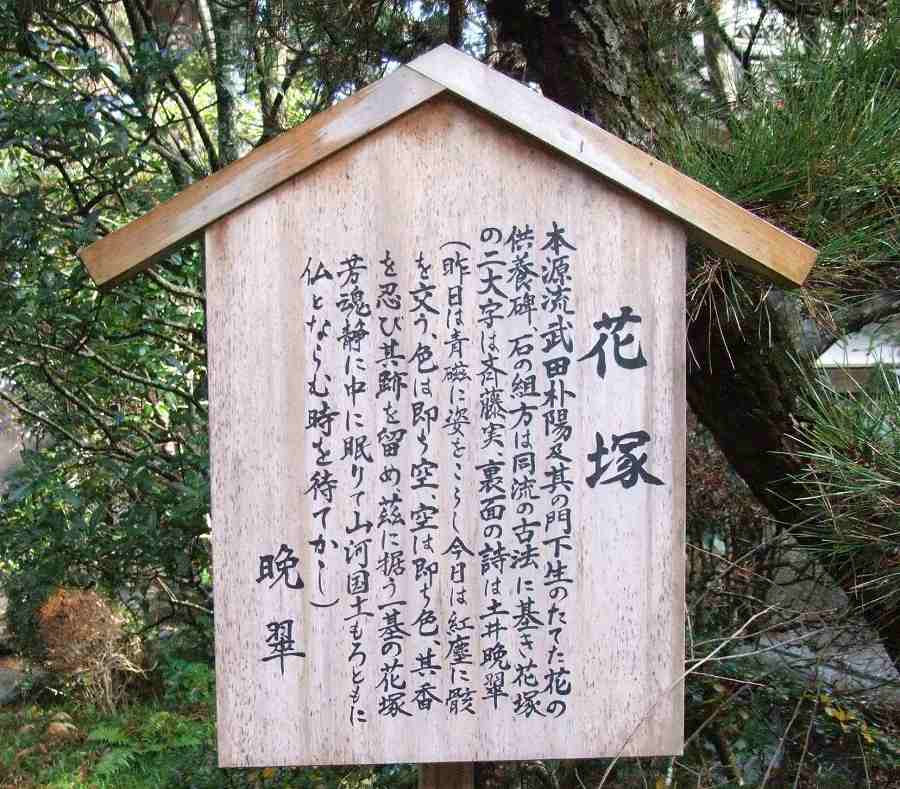 花塚
本源流武田朴陽及其の門下生のたてた花の
供養碑、石の組方は同流の古法に基き花塚
の二大字は斉藤実、裏面の詩は土井晩翠
(昨日は青磁に姿をこらし今日は紅塵に骸
を交う、色は即ち空、空は即ち色、其香
を忍び其跡を留め茲に据う一基の花塚
芳魂静に中に眠りて山河国土もろともに
仏とならむ時を待てかし)
晩翠